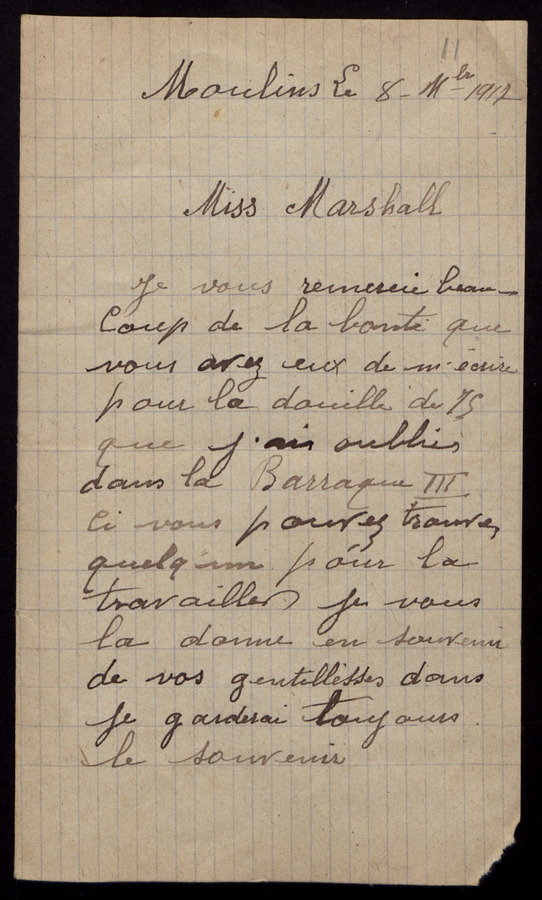 11
Moulins Le 8 - Mbr 1917
Miss Marshall
Je vous remercie beau-
Coup de la bonté que
vous avez eux de m'écrire
pour la douille de 75
que j'ai oublies
dans la Barraque III
Ci vous pouvez trouvez
quelqu'un pour la
travailler je vous
la donne en souvenir
de vos gentillesses dans
je garderai toujours
le souvenir